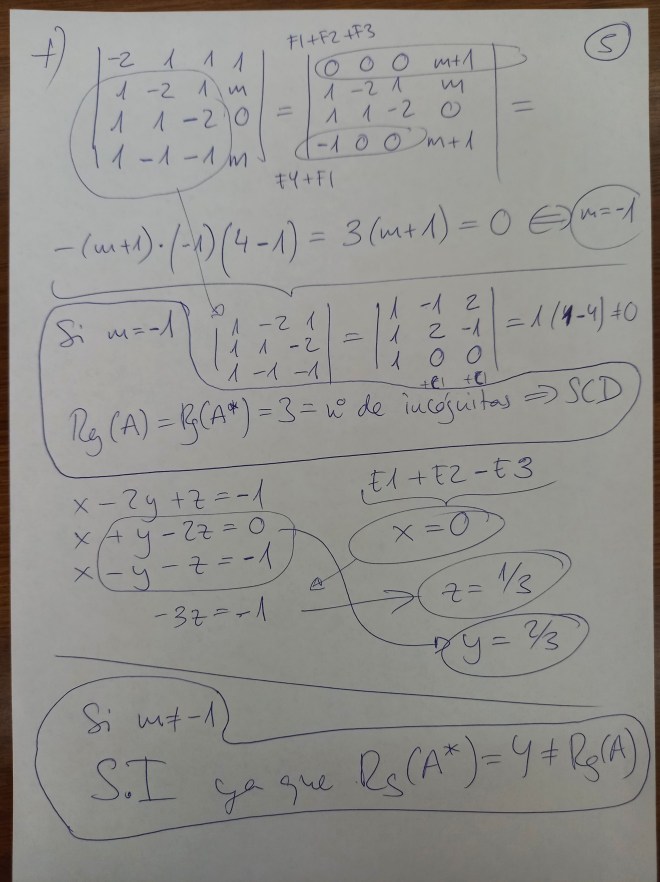 f)
5
F1+F2+F3
| -2 1 1 1 | | 0 0 0 m+1 |
| 1 -2 1 m | = | 1 -2 1 m | =
| 1 1 -2 0 | | 1 1 -2 0 |
| 1 -1 -1 m | | -1 0 0 m+1 |
F4+F1
-(m+1)·(-1)(4-1) = 3(m+1) = 0 ⇔ m=-1
Si m=-1 | 1 -2 1 | = | 1 -1 2 | = 1(1-4) ≠ 0
| 1 1 -2 | | 1 2 -1 |
| 1 -1 -1 | | 1 0 0 |
+C1 +C1
Rg(A) = Rg(A*) = 3 = nº de incógnitas ⇒ SCD
E1+E2-E3
x - 2y + z = -1
x + y - 2z = 0 x = 0
x - y - z = -1
-3z = -1 → z = 1/3
y = 2/3
Si m≠-1
S.I ya que Rg(A*) = 4 ≠ Rg(A)